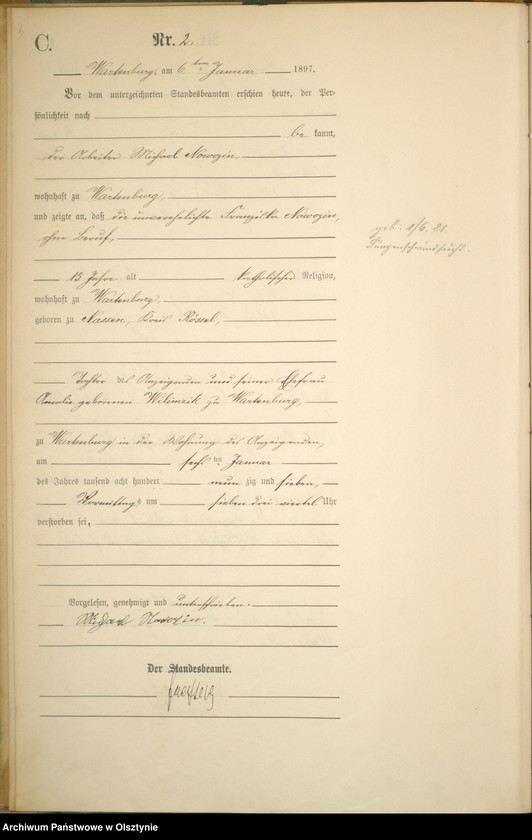 C.
Nr. 2.
Wartenburg, am 6ten Januar 1897.
Vor dem unterzeichneten Standesbeamten erschien heute, der Per-
sönlichkeit nach
be kannt,
der Arbeiter Michael Nowozin
wohnhaft zu Wartenburg,
und zeigte an, daß die unverehelichte Franziska Nowozin,
ohne Beruf,
geb. 1/6. 81.
Lungenschwindsucht.
15 Jahre alt katholischer Religion,
wohnhaft zu Wartenburg,
geboren zu Nassen, Kreis Rössel,
Tochter des Anzeigenden und seiner Ehefrau
Amalie geborenen Wilimzik zu Wartenburg,
zu Wartenburg in der Wohnung des Anzeigenden,
am sechsten Januar
des Jahres tausend acht hundert neun zig und sieben,
Vormittags um sieben drei viertel Uhr
verstorben sei.
Vorgelesen, genehmigt und unterschrieben.
Nowozin.
Der Standesbeamte.
Archiwum Państwowe w Olsztynie